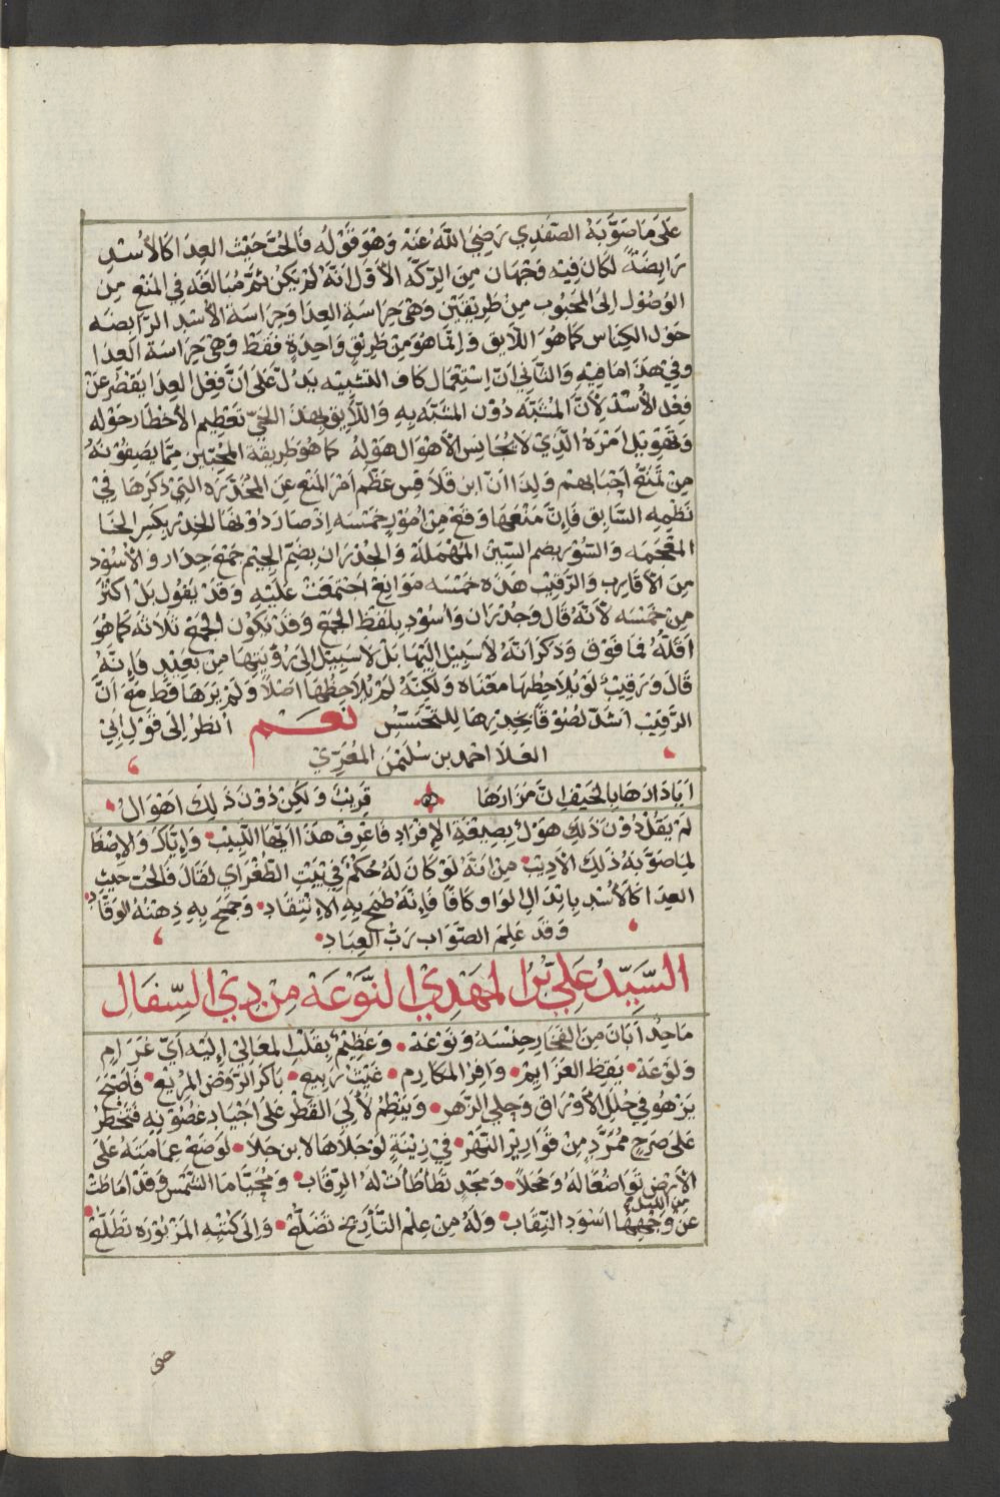 على ما صوّبه الصفدي رضي الله عنه وهو قوله فالحت حيث العدا كالأسد
رابضة لكان فيه وجهان من الركّه الأوّل انه لم يكن ثم مبالغه في المنع من
الوصول الى المحبوب من طريقين وهي حراسة العدا وحراسة الأسد الرابضه
حول الكناس كما هو اللايق وانما هو من طريق واحدة فقط وهي حراسة العدا
وفي هذا ما فيه والثاني ان استعمال كاف التشبيه يدل على انّ فعل العدا يقصر عن
فعل الأسد لأن المشبّه دون المشبّه به واللايق بهذا الحيّ تعظيم الأخطار حوله
وتهويل امره الذي لا يجانس الأهوال هوله كما هو طريقة المحبّين مما يصفونه
من تمنّع احبابهم ولذا انّ ابن قلاقس عظّم امر المنع عن المخدّره التي ذكرها في
نظمه السابق فإن منعها وقع من أمور خمسه اذ صار دونها الخدر بكسر الخا
المعجمه والسور بضم السين المهملة والجدران بضم الجيم جمع جدار والأسود
من الأقارب والرقيب هذه خمسه موانع اجتمعت عليه وقد يقول بل اكثر
من خمسه لأنه قال وجدران واسود بلفظ الجمع وقد تكون الجمع ثلاثه كما هو
اقلّه فما فوق وذكر انه لا سبيل اليها بل لا سبيل الى رؤيتها من بعيد فإنه
قال ورقيب لو يلاحظها معناه ولكنه لم يلاحظها اصلا ولم يرها قط مع انّ
الرقيب اشد لصوقا بجدرها للتجسّس نعم انظر الى قول ابي
العلا احمد بن سليمن المعرّي
ايا دارها بالخيف ان مزارها قريب ولكن دون ذلك اهوال
لم يقل دون ذلك هول بصيغة الإفراد فاعرف هذا ايها اللبيب وإياك والإصغا
لما صوّبه ذلك الأديب من انه لو كان له حكم في بيت الطغراي لقال فالحت حيث
العدا كالأسد بابدال الواو كافا فإنه طمح به الانتقاد وجمح به ذهنه الوقاد
وقد علم الصواب رب العباد
السيّد علي بن المهدي النوعة من ذي السفال
ماجد ابان من الفخار جنسه ونوعة وعظيم بقلب المعالي إليه أيّ غرام
ولوعة يقظ العزايم وافر المكارم غيث ربيع باكر الروض المريع فاصبح
يزهو في حلل الأوراق وحلي الزهر وينظم لألي القطر على اجياد غصونه فتخطر
على صرح ممرّد من قوارير النهر في زينة لو جلاها لابن جلا لوضع عمامته على
الأرض تواضعا له ومحلا ومجد تطأطأت له الرقاب ومحيّا ما الشمس وقد اماطت
من الليل
عن وجهها اسود النقاب وله من علم التأريخ تضلّع والى كتبه المزبوره تطلّع